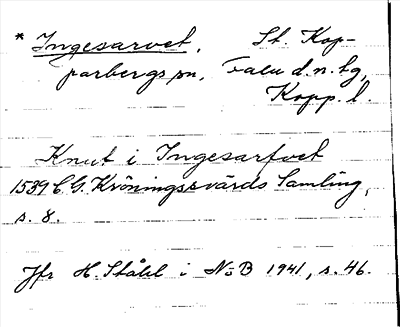 * Ingesarvet. St. Kop-
parbergs sn, Falu d.n. tg,
Kopp. l.
Knut i Ingesarfvet
1539 C.G. Kröningssvärds Samling,
s. 8.
Jfr H. Ståhl i NoB 1941, s. 46.